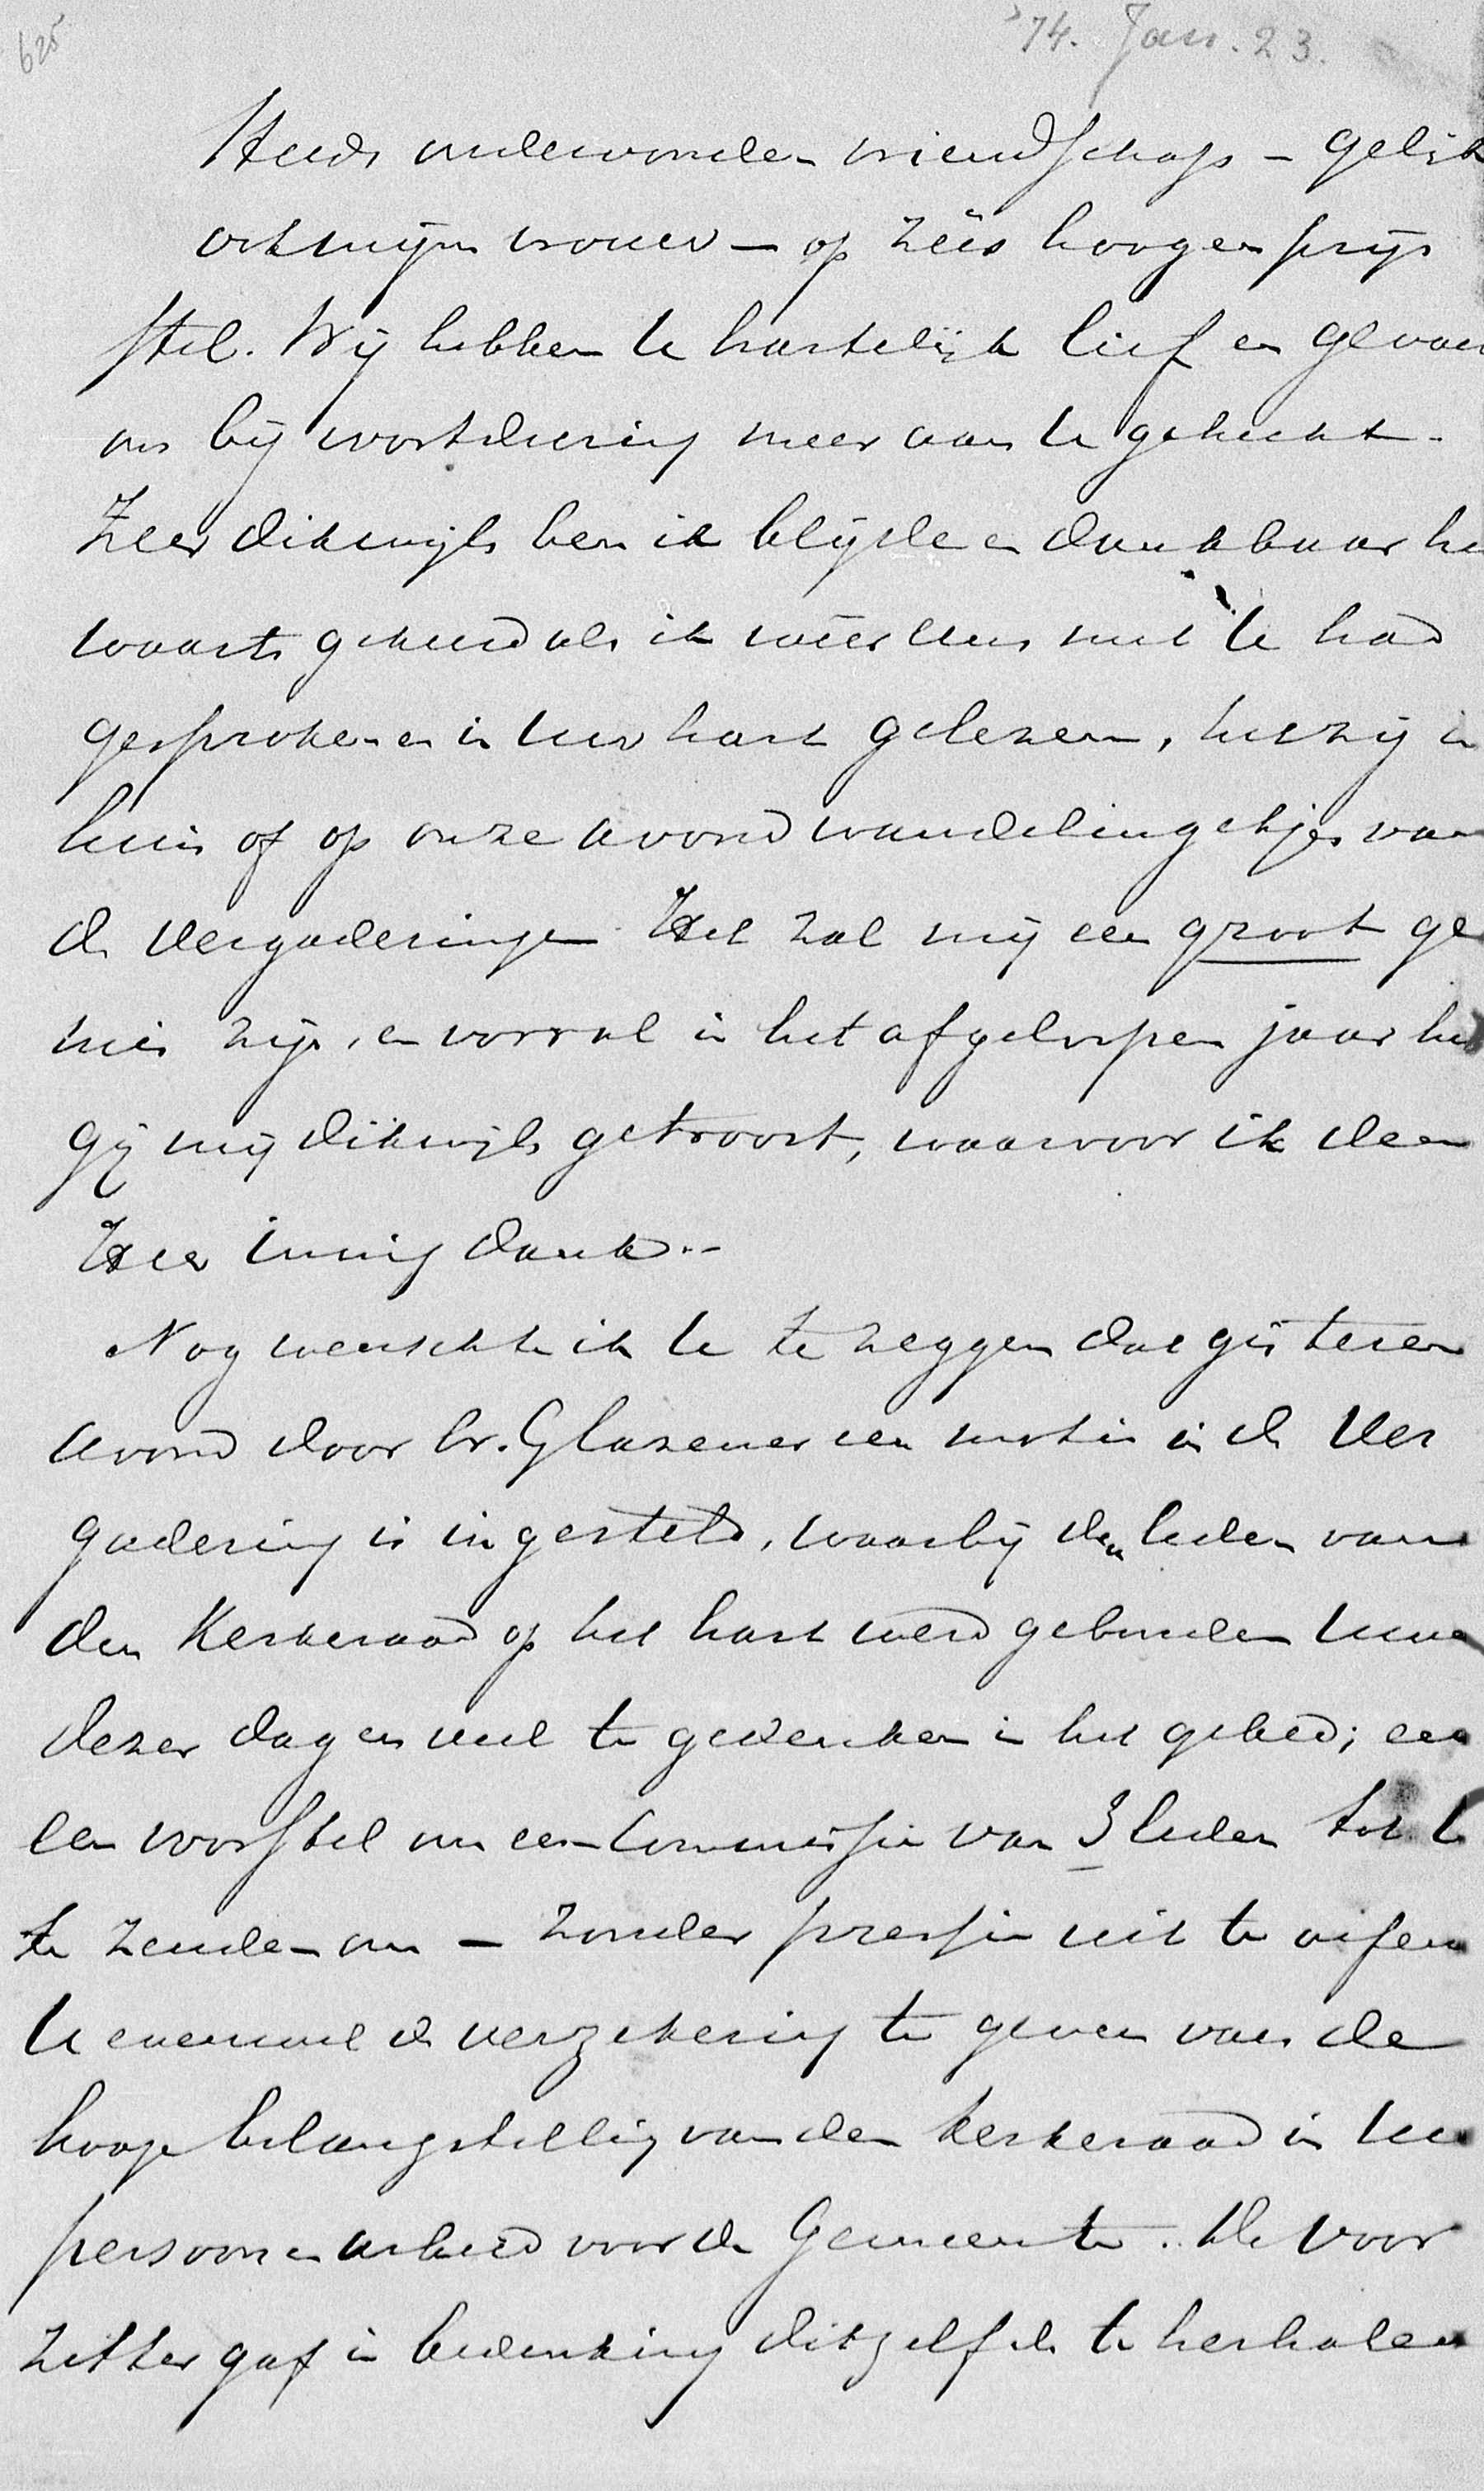 625
'74. Jan. 23.
Steeds ondervonden vriendschap – gelijk
ook mijn vrouw – op zéér hoogen prijs
stel. Wij hebben U hartelijk lief en gevoelen
ons bij voortduring meer aan U gehecht.
Zeer dikwijls ben ik blijde en dankbaar he
waarts gekeerd als ik wéér eens met U had
gesproken en in Uw hart gelezen, hetzij in
huis of op onze avondwandelingetjes van
de Vergaderingen. Het zal mij een groot ge
mis zijn, en vooral in het afgeloopen jaar heb
gij mij dikwijls getroost, waarvoor ik den
Heer innig dank.–
Nog wenschte ik U te zeggen dat gisteren
avond door br. Glazener een motie in de Ver
gadering is ingesteld, waarbij den leden van
den Kerkeraad op het hart werd gebonden Uwe
dezer dagen veel te gedenken in het gebed; een
een voorstel om een Commissie van 3 leden tot U
te zenden om – zonder pressie uit te oefenen
U evenwel de verzekering te geven van de
hooge belangstelling van den Kerkeraad in Uw
persoon en arbeid voor de Gemeente. De Voor
zitter gaf in bedenking ditzelfde te herhalen